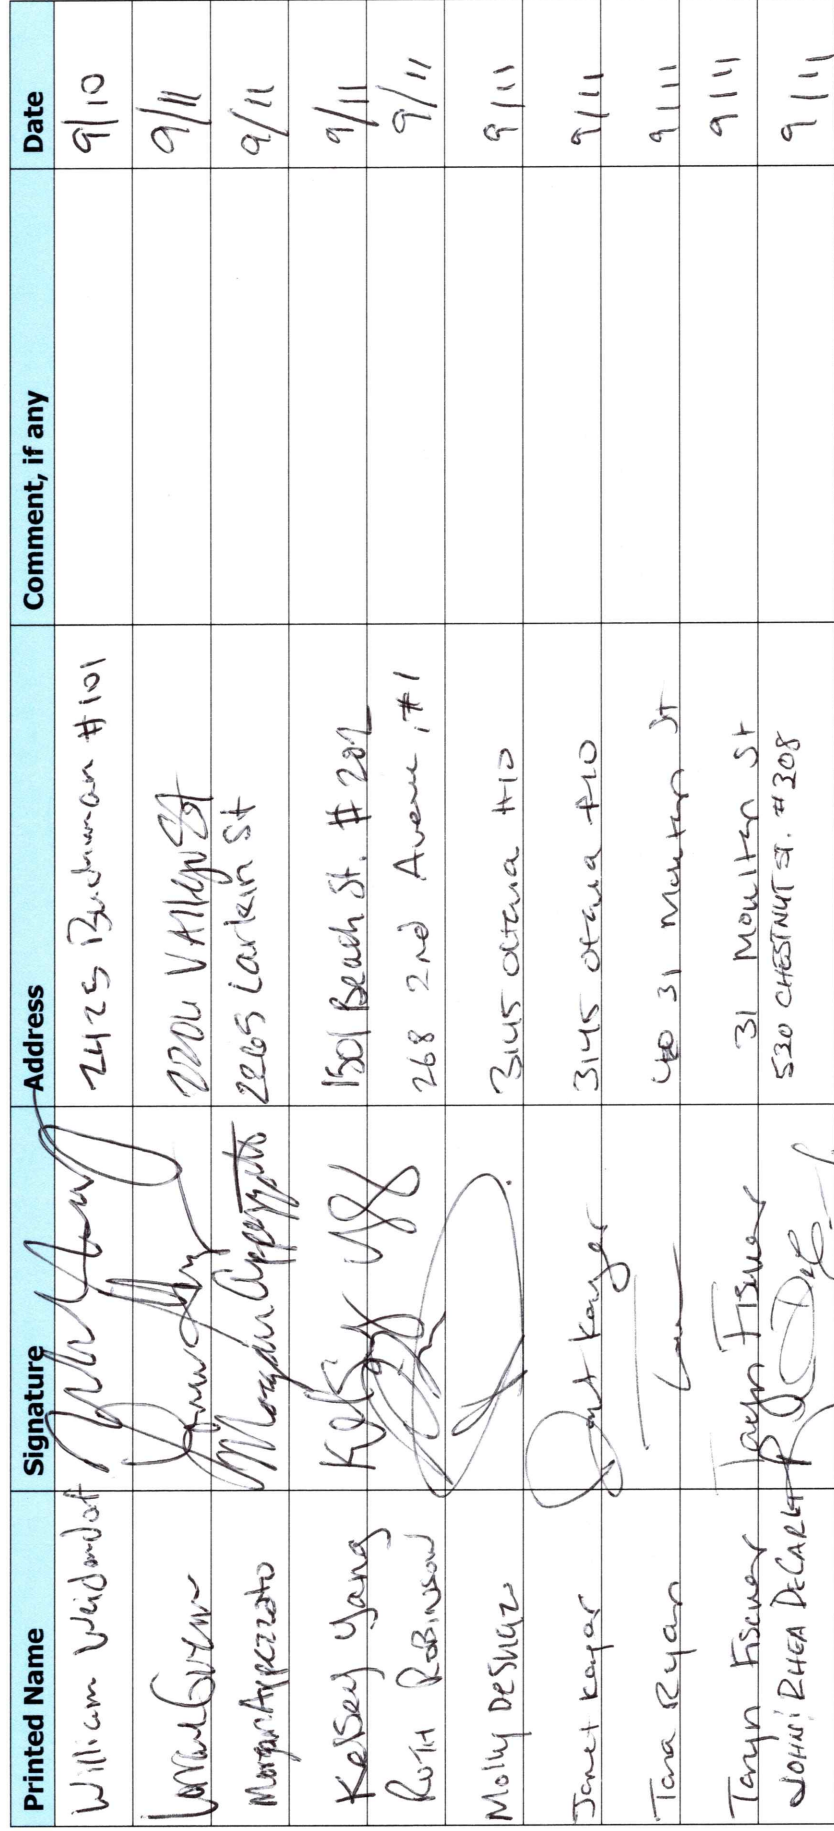 Printed Name Signature Address Comment, if any Date
William Weidendorf 2425 Buchanan #101 9/10
Green 2204 Vallejo St 9/11
Morgan Appezzato Morgan Appezzato 2265 Larkin St 9/11
Kelsey Yang Kelsey 1501 Beach St. #202 9/11
RUTH ROBINSON 268 2nd Avenue, #1 9/11
Molly DeShazo 3145 Octavia #10 9/11
Janet Kanger Janet Kanger 3145 Octavia #10 9/11
Tara Ryan 31 Moulton St 9/11
Taryn Fischer Taryn Fischer 31 Moulton St 9/11
JOHNI RHEA DECARLA 530 CHESTNUT ST. #308 9/11